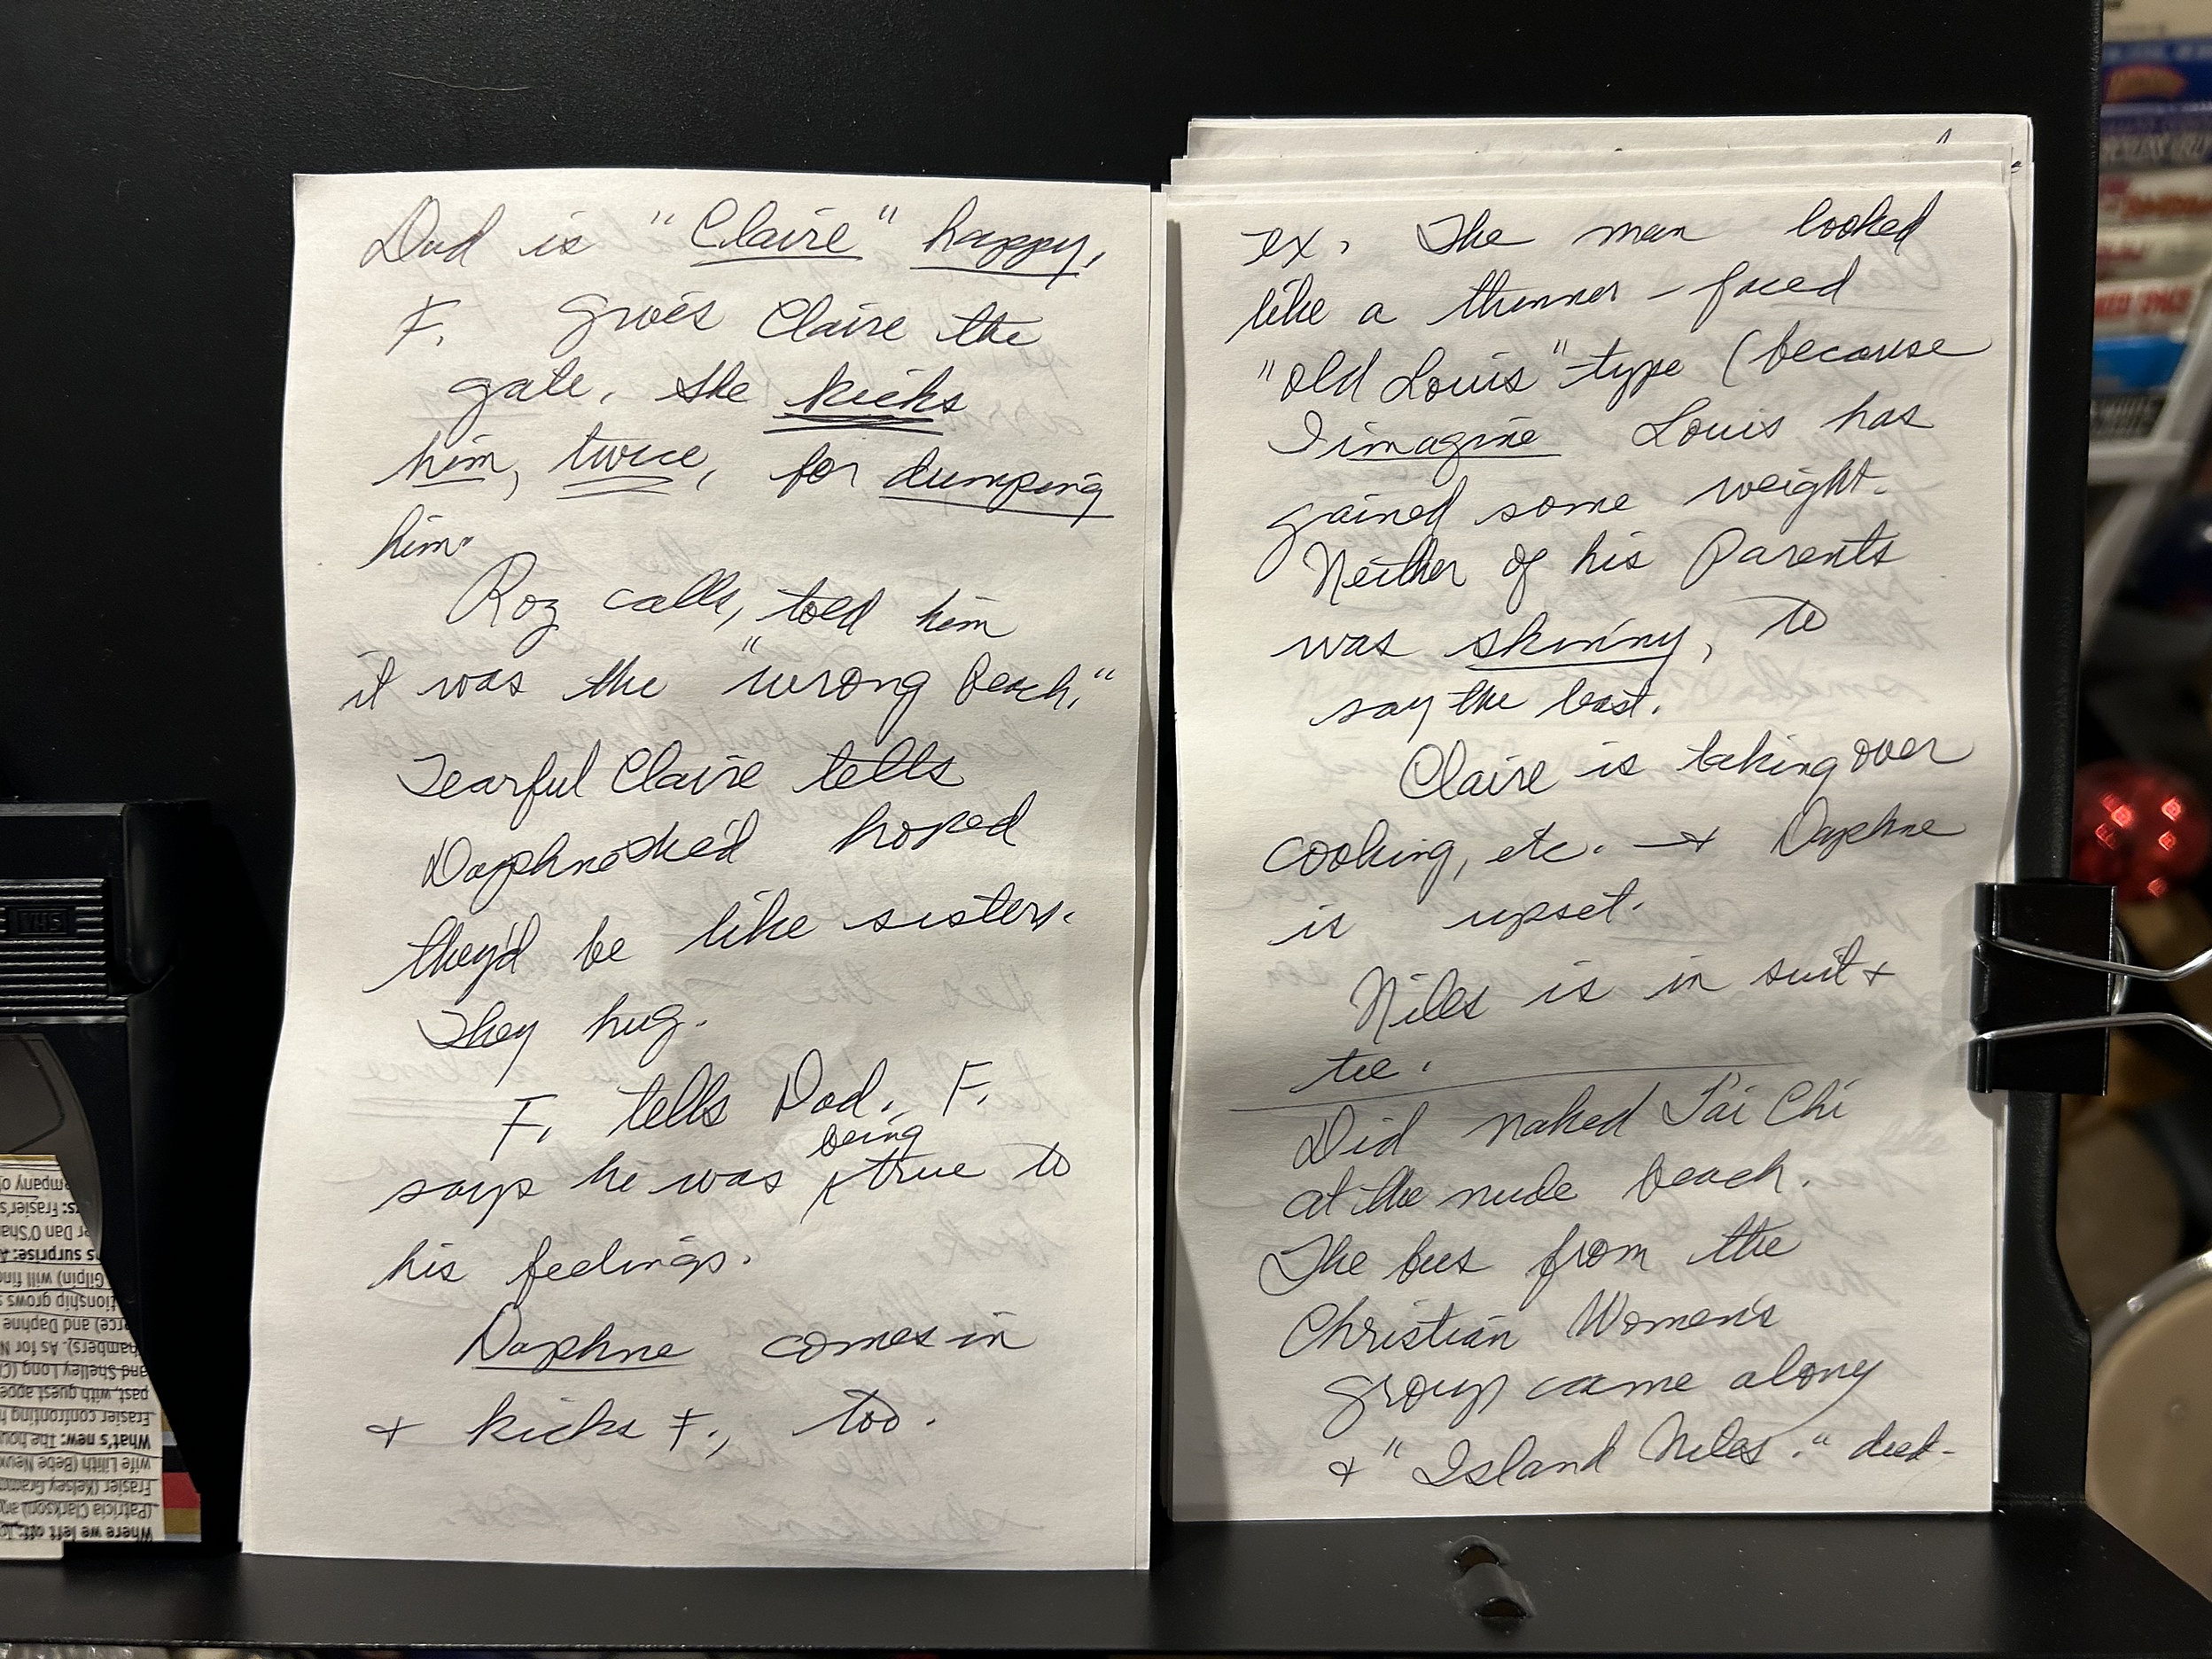 Dad is "Claire" happy.
F. gives Claire the
gate. She kicks
him, twice, for dumping
him.
Roz calls, told him
it was the "wrong beach."
Tearful Claire tells
Daphne she'd hoped
they'd be like sisters.
They hug.
F. tells Dad. F.
being
says he was true to
his feelings.
Daphne comes in
+ kicks F., too.
ex. The man looked
like a thinner-faced
"old Louis" type (because
I imagine Louis has
gained some weight.
Neither of his Parents
was skinny, to
say the least.
Claire is taking over
cooking, etc. → Daphne
is upset.
Niles is in suit +
tie.
Did naked Tai Chi
at the nude beach.
The bus from the
Christian Women's
group came along
+ "Island Niles." died-
VHS
ompany of
rs: Frasier's
er Dan O'Sha
's surprise: A
Gilpin) will find
tionship grows s
erce) and Daphne
hambers). As for N
and Shelley Long (C
past, with guest appe
Frasier confronting h
What's new: The hou
wife Lilith (Bebe Neuw
Frasier (Kelsey Gramm
(Patricia Clarkson) an
Where we left off: